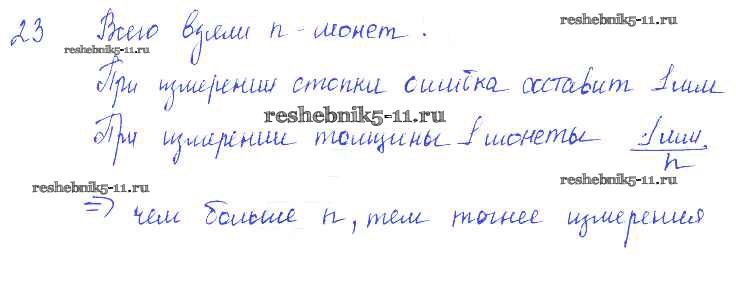 23 Всего взяли n - монет.
reshebnik5-11.ru
reshebnik5-11.ru
При измерении стопки ошибка составит 1 мм
reshebnik5-11.ru
При измерении толщины 1 монеты 1 мм/n
reshebnik5-11.ru
reshebnik5-11.ru
=> чем больше n, тем точнее измерения